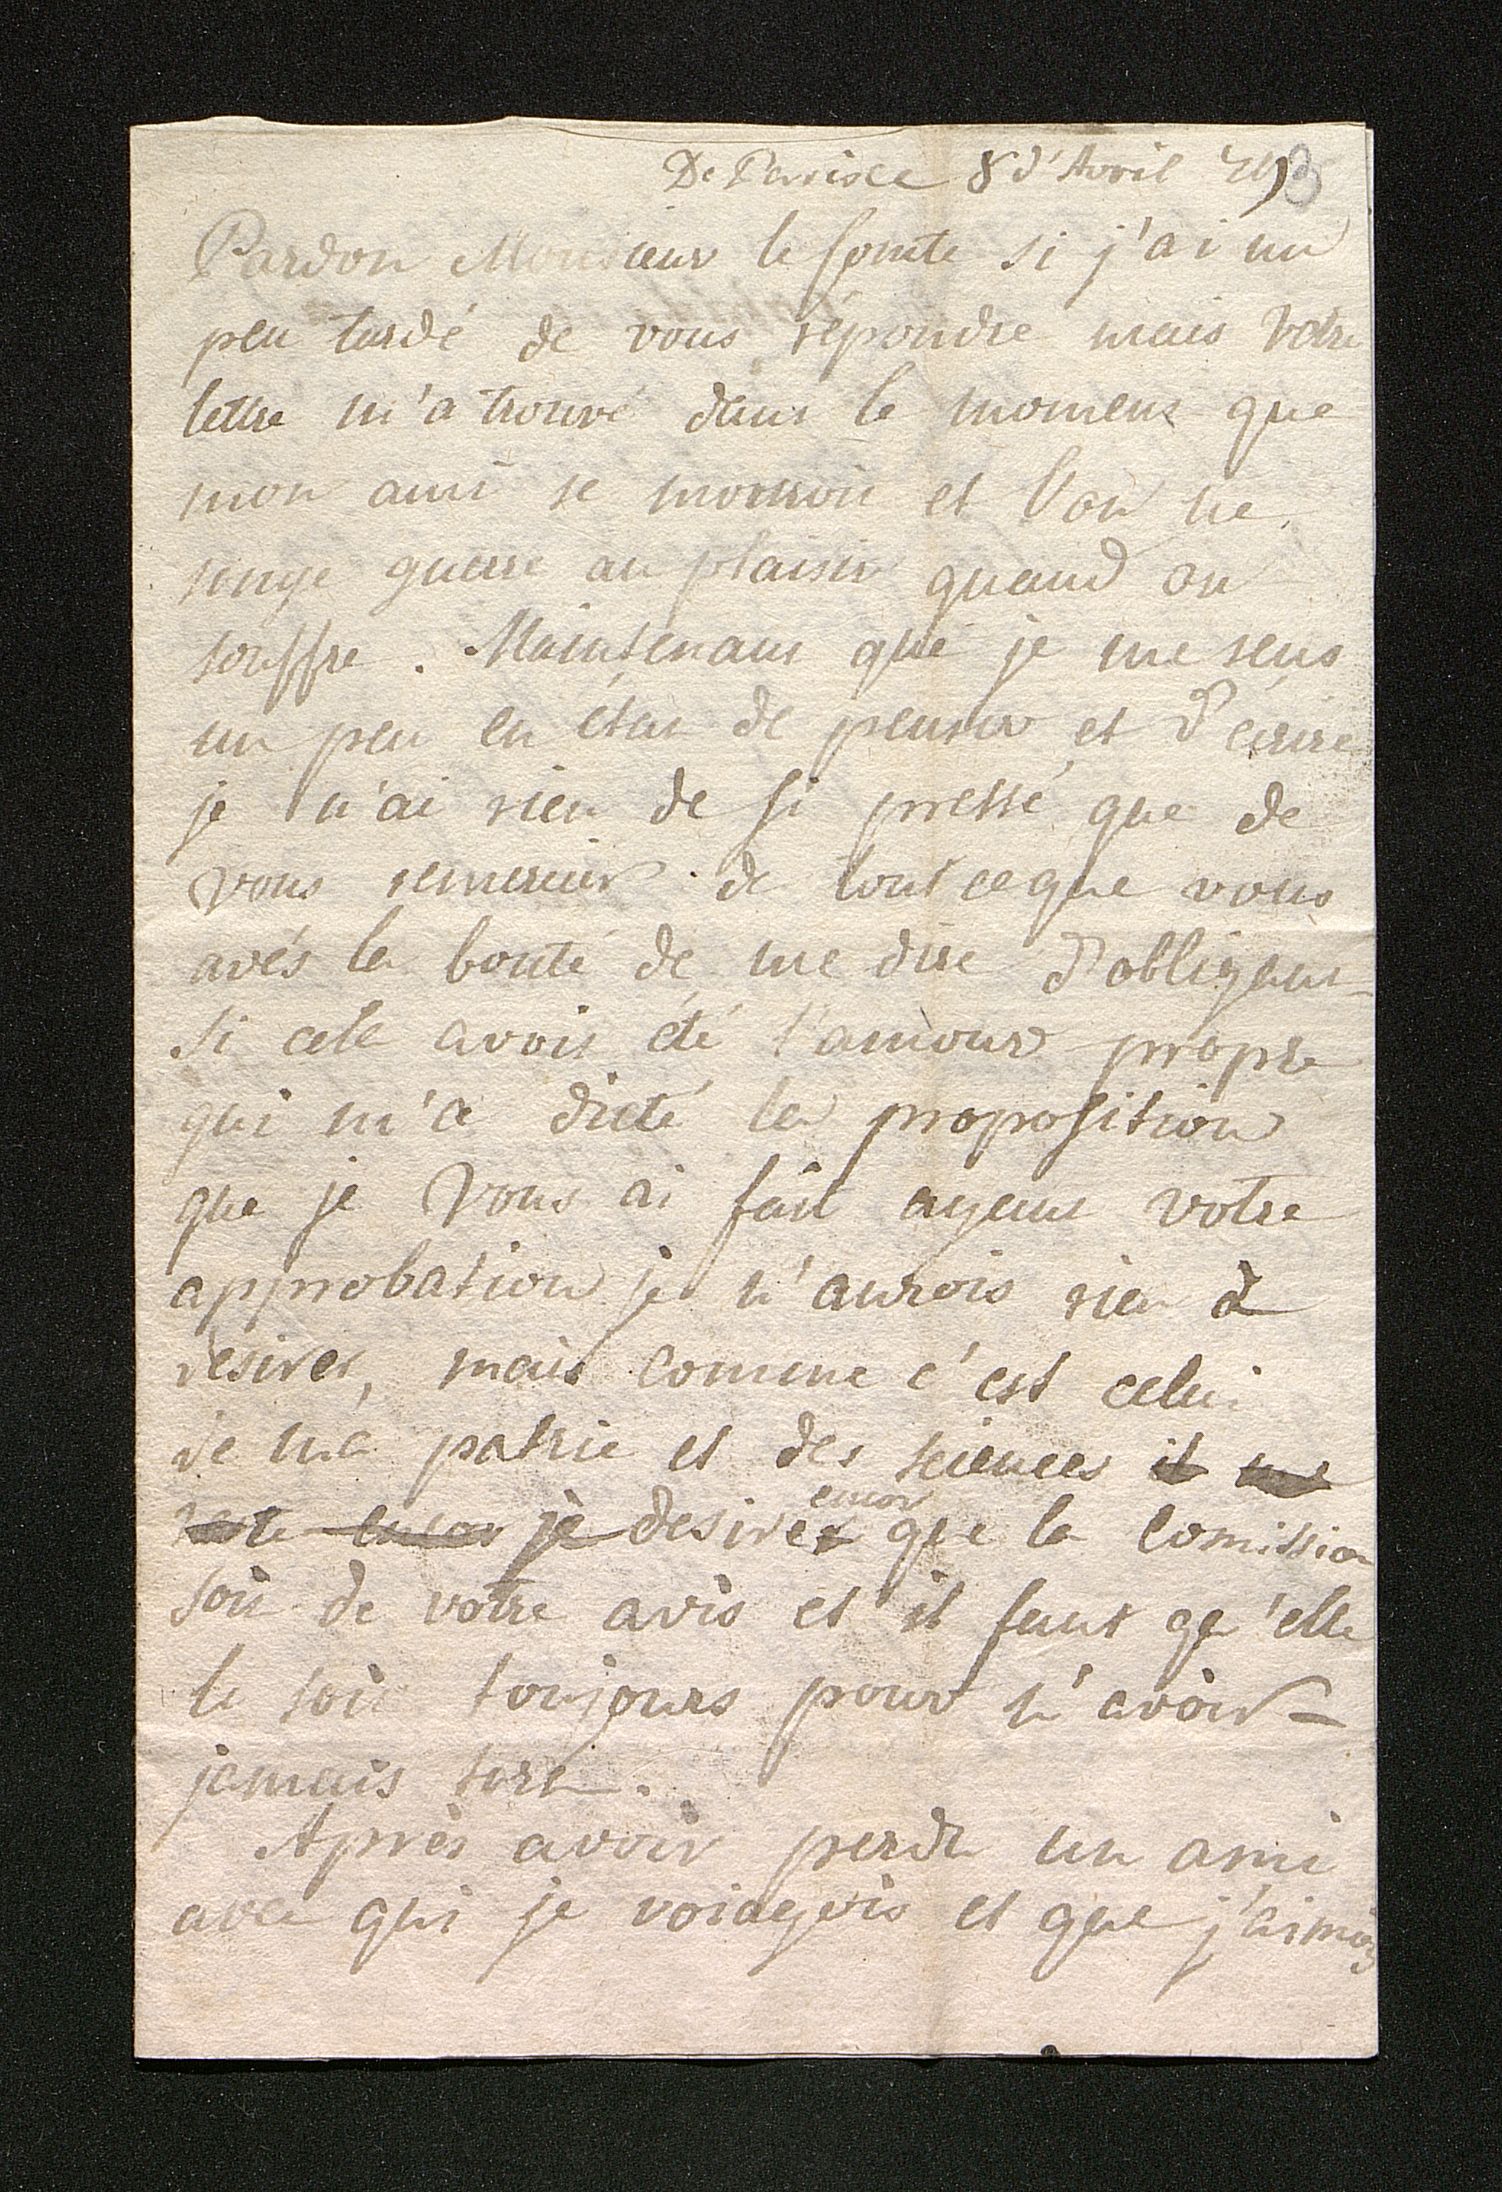 De Paris ce 8 d'Avril
Pardon Monsieur le Comte si j'ai un
peu tardé de vous répondre mais votre
lettre m'a trouvé dans le moment que
mon ami se mouroit et l'on ne
songe guere au plaisir quand on
souffre. Maintenant que je me sens
un peu en état de penser et d'écrire
je n'ai rien de si pressé que de
vous remercier de tout ce que vous
avés la bonté de me dire d'obligeant
si cela avoit été l'amour propre
qui m'a dicté la proposition
que je vous ai fait ayant votre
approbation je n'aurois rien à
desirer, mais comme c'est celui
de ma patrie et des sciences il me
reste encor je desirer encor que la Comission
soit de votre avis et il faut qu'elle
le soit toujours pour n'avoir
jamais tort.
Après avoir perdu un ami
avec qui je voiageois et que j'aimois